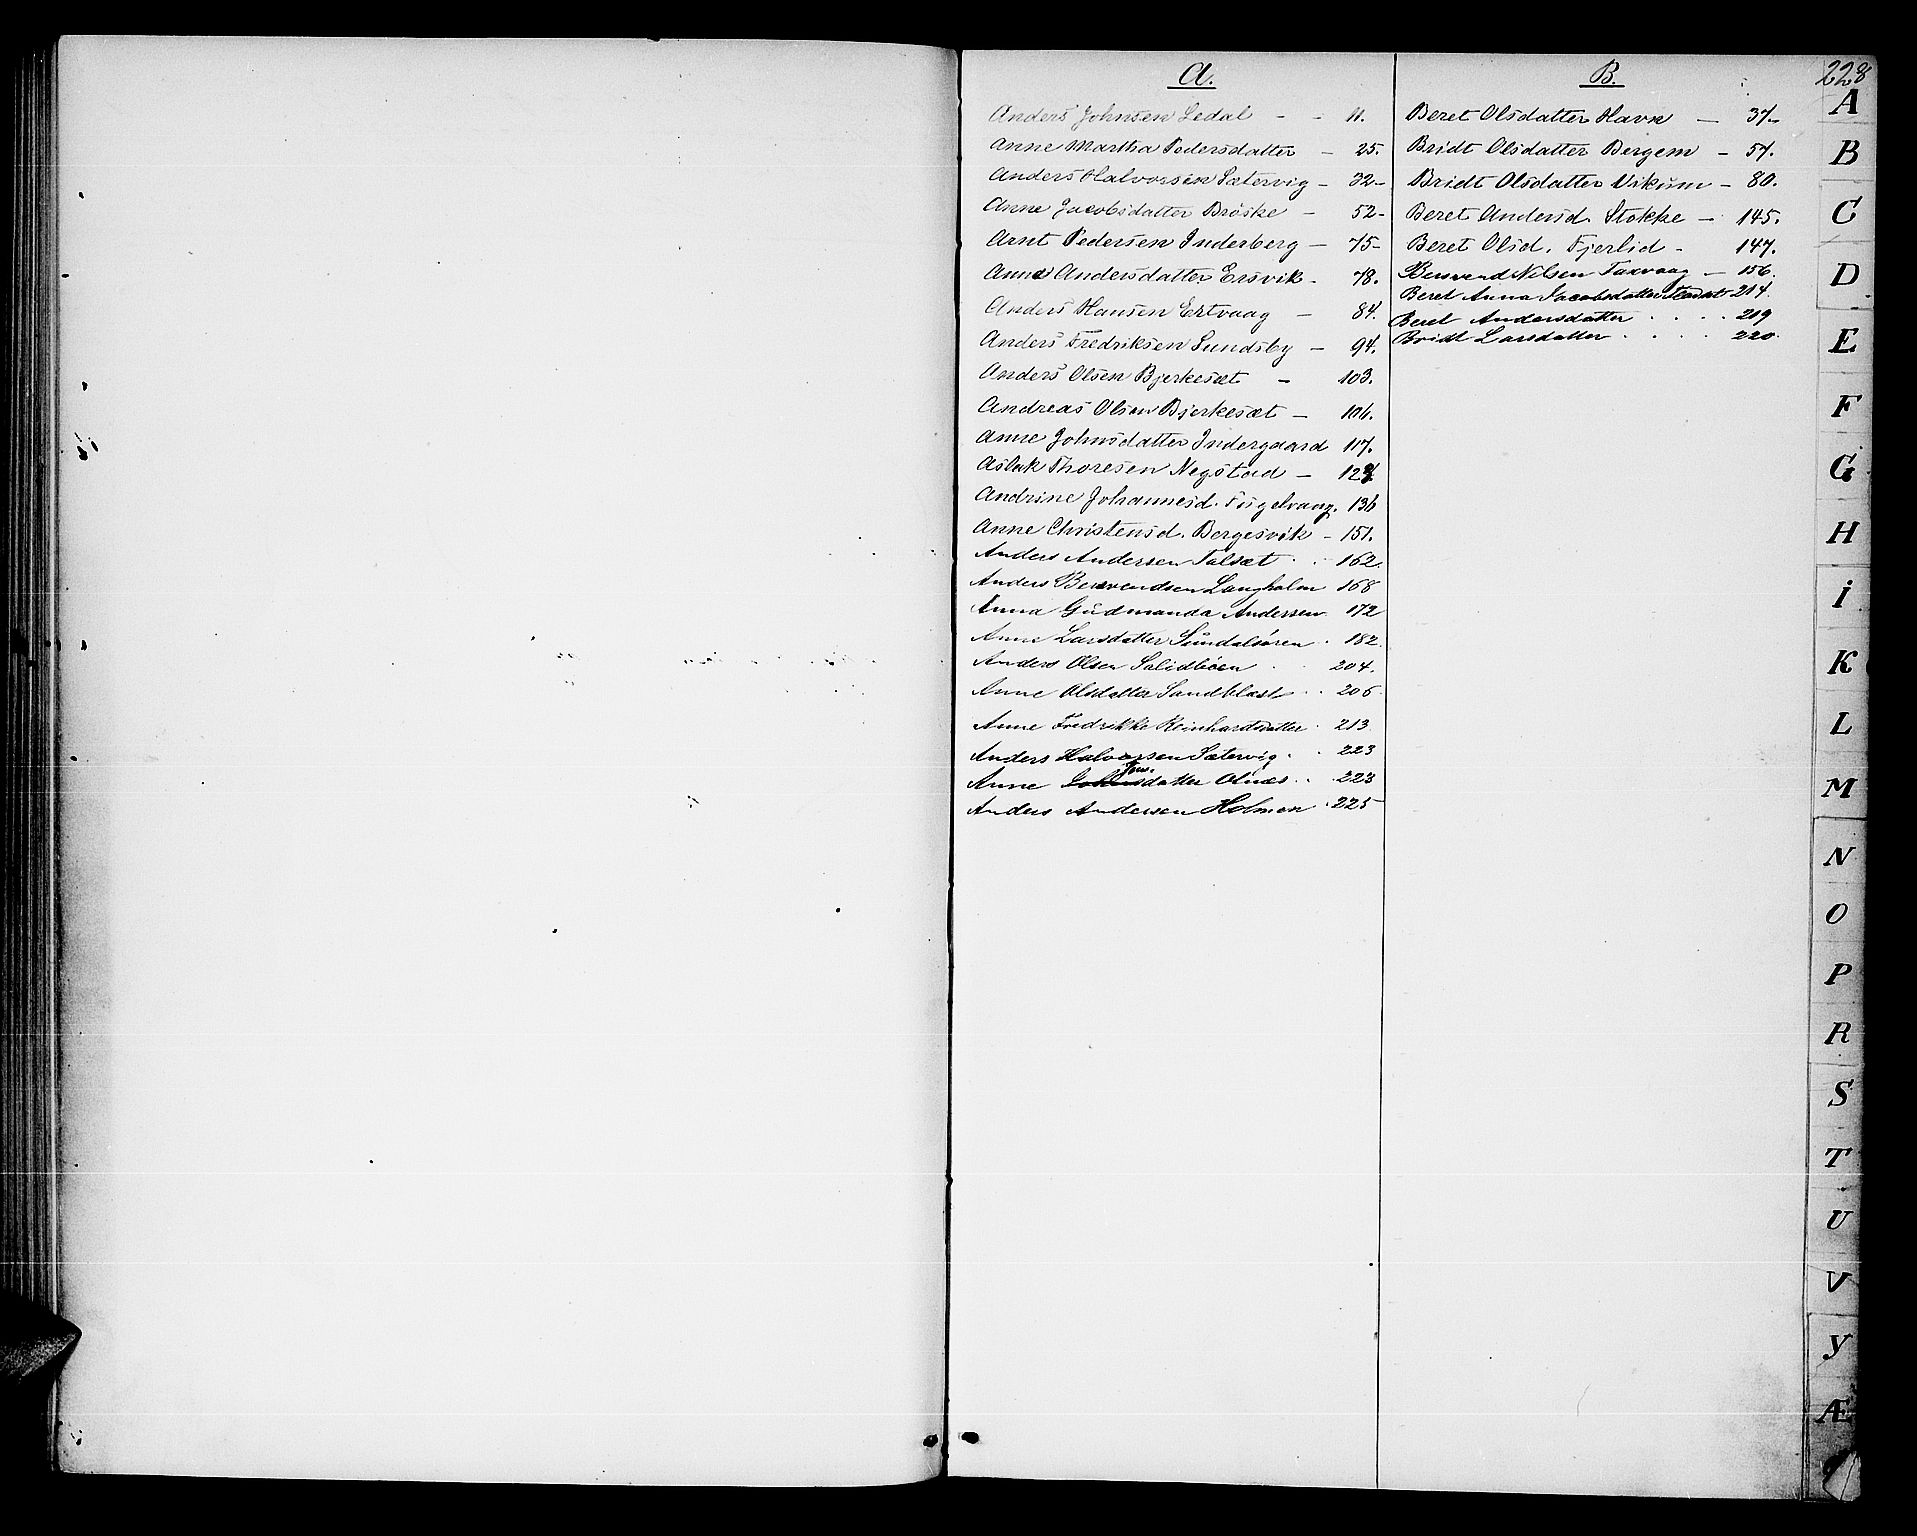 228
A.
Anders Johnsen Ledal - - 11.
Anne Martha Pedersdatter - 25.
Anders Halvorsen Sætervig - 32-
Anne Jacobsdatter Bröske - 52-
Arnt Pedersen Inderberg - 75-
Anne Andersdatter Ersvik - 78.
Anders Hansen Ertvaag - 84.
Anders Fredriksen Sundsby - 94.
Anders Olsen Bjerkesæt - 103.
Andreas Olsen Bjerkesæt - 106.
Anne Johnsdatter Indergaard 117.
Aslak Thoresen Negstad - 124
Andrine Johannesd. Fugelvaag. 136
Anne Christensd. Bergesvik - 151.
Anders Andersen Talsæt . . 162.
Anders Bernvendsen Langholm 168
Anna Gudmanda Andersen 172
Anne Larsdatter Sundalsören . 182.
Anders Olsen Solidböen . . 204.
Anne Olsdatter Sandblast . . 206.
Anne Fredrikke Reinhardsdatter . 213.
Anders Halvorsen Sætervig . . 223
Anne Jonsdatter Olnæs . . 223
Anders Andersen Holmen . 225
B.
Beret Olsdatter Havn - 37-
Bridt Olsdatter Bergem - 57.
Bridt Olsdatter Vikum - 80.
Beret Andersd. Stokke - 145.
Beret Olsd. Fjerlid - 147.
Bernvend Nilsen Taxvaag - 156.
Beret Anna Jacobsdatter 214.
Beret Andersdatter . . . . 219
Bridt Larsdatter . . . . 220.
A
B
C
D
E
F
G
H
I
K
L
M
N
O
P
R
S
T
U
V
Y
Æ